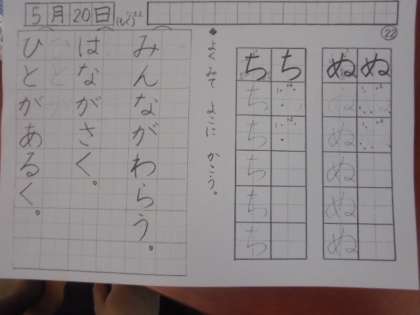 5月20日
㉒
ぬ
ぬぬぬぬぬぬ
ち
ちちちちちち
◆よくみて よこに かこう。
みんながわらう。
はながさく。
ひとがあるく。